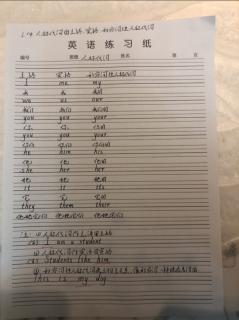 1.4 人称代词的主格、宾格、形容词性人称代词
英语练习纸
编号 班级 人称代词 姓名
主格 宾格 形容词性人称代词
I me my
我 我 我的
we us our
我们 我们 我们的
you you your
你 你 你的
you you your
你们 你们 你们的
he him his
他 他 他的
she her her
她 她 她的
it it its
它 它 它的
they them their
他她它们 他她它们 他她它们的
人称代词作主语用主格
I am a student
人称代词作宾语用宾格
students like him
形容词性人称代词
This is my dog